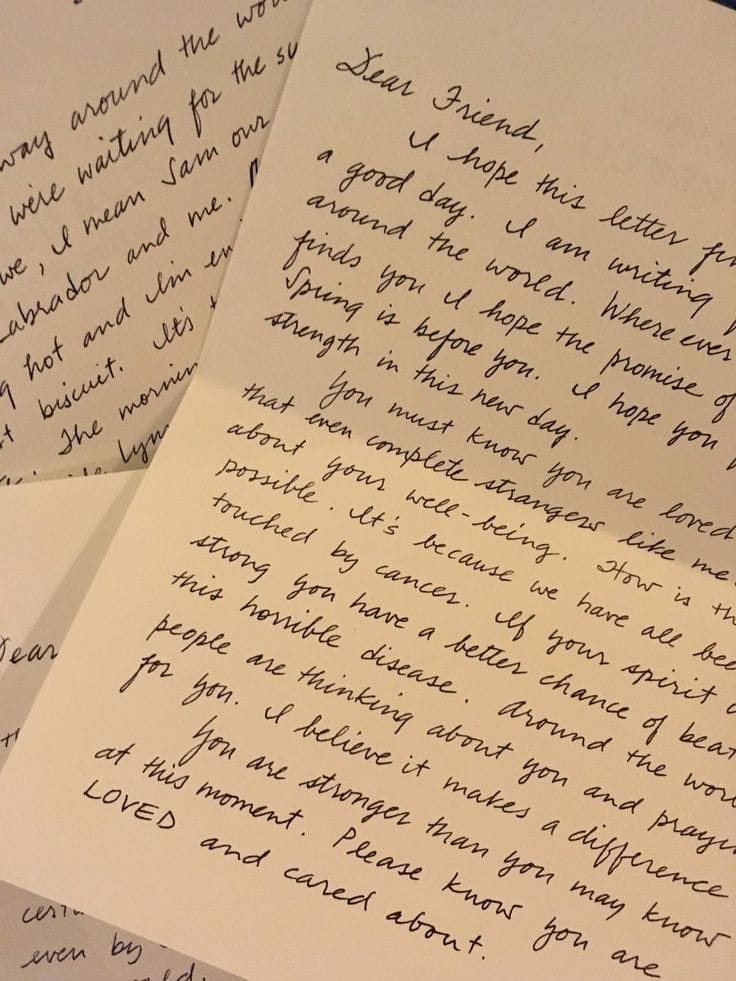 way around the
we're waiting for the
we, I mean Sam our
Labrador and me.
hot and I'm
biscuit. It's
The
Dear Friend,
I hope this letter
a good day. I am writing
around the world. Where ever
finds you I hope the promise of
Spring is before you. I hope you
strength in this new day.
You must know you are loved
that even complete strangers like me
about your well-being. How is
possible. It's because we have all
touched by cancer. If your spirit
strong you have a better chance of
this horrible disease. Around the
people are thinking about you and
for you. I believe it makes a difference
You are stronger than you may know
at this moment. Please know you are
LOVED and cared about.
Dear
even by